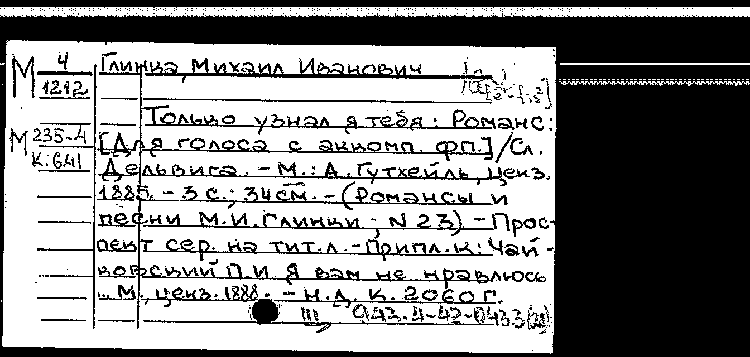 М 4/1212
Глинка, Михаил Иванович
Только узнал я тебя: Романс:
М 235-4/К:641
[Для голоса с аккомп. фп.] / Сл.
Дельвига. - М.: А. Гутхейль, ценз.
1885. - 3 с.; 34 см. - (Романсы и
песни М.И. Глинки; N 23) - Прос-
пект сер. на тит.л. - Припл. к: Чай-
ковский П.И. Я вам не нравлюсь
... М., ценз. 1888. - Н.д. К. 2060 Г.
III 943.4-42-0433